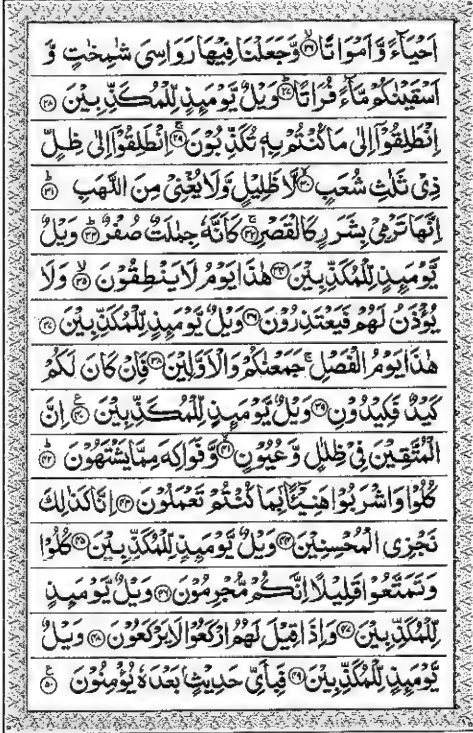 اَحْيَآءً وَّ اَمْوَاتًا ﴿۲۶﴾ وَّ جَعَلْنَا فِيْهَا رَوَاسِيَ شٰمِخٰتٍ وَّ
اَسْقَيْنٰكُمْ مَّآءً فُرَاتًا ﴿۲۷﴾ وَيْلٌ يَّوْمَىِٕذٍ لِّلْمُكَذِّبِيْنَ ﴿۲۸﴾
اِنْطَلِقُوْۤا اِلٰى مَا كُنْتُمْ بِهٖ تُكَذِّبُوْنَ ﴿۲۹﴾ اِنْطَلِقُوْۤا اِلٰى ظِلٍّ
ذِيْ ثَلٰثِ شُعَبٍ ﴿۳۰﴾ لَّا ظَلِيْلٍ وَّ لَا يُغْنِيْ مِنَ اللَّهَبِ ﴿۳۱﴾
اِنَّهَا تَرْمِيْ بِشَرَرٍ كَالْقَصْرِ ﴿۳۲﴾ كَاَنَّهٗ جِمٰلَتٌ صُفْرٌ ﴿۳۳﴾ وَيْلٌ
يَّوْمَىِٕذٍ لِّلْمُكَذِّبِيْنَ ﴿۳۴﴾ هٰذَا يَوْمُ لَا يَنْطِقُوْنَ ﴿۳۵﴾ وَ لَا
يُؤْذَنُ لَهُمْ فَيَعْتَذِرُوْنَ ﴿۳۶﴾ وَيْلٌ يَّوْمَىِٕذٍ لِّلْمُكَذِّبِيْنَ ﴿۳۷﴾
هٰذَا يَوْمُ الْفَصْلِ ۚ جَمَعْنٰكُمْ وَ الْاَوَّلِيْنَ ﴿۳۸﴾ فَاِنْ كَانَ لَكُمْ
كَيْدٌ فَكِيْدُوْنِ ﴿۳۹﴾ وَيْلٌ يَّوْمَىِٕذٍ لِّلْمُكَذِّبِيْنَ ﴿۴۰﴾ اِنَّ
الْمُتَّقِيْنَ فِيْ ظِلٰلٍ وَّ عُيُوْنٍ ﴿۴۱﴾ وَّ فَوَاكِهَ مِمَّا يَشْتَهُوْنَ ﴿۴۲﴾
كُلُوْا وَ اشْرَبُوْا هَنِيْٓـًٔۢا بِمَا كُنْتُمْ تَعْمَلُوْنَ ﴿۴۳﴾ اِنَّا كَذٰلِكَ
نَجْزِي الْمُحْسِنِيْنَ ﴿۴۴﴾ وَيْلٌ يَّوْمَىِٕذٍ لِّلْمُكَذِّبِيْنَ ﴿۴۵﴾ كُلُوْا
وَ تَمَتَّعُوْا قَلِيْلًا اِنَّكُمْ مُّجْرِمُوْنَ ﴿۴۶﴾ وَيْلٌ يَّوْمَىِٕذٍ
لِّلْمُكَذِّبِيْنَ ﴿۴۷﴾ وَ اِذَا قِيْلَ لَهُمُ ارْكَعُوْا لَا يَرْكَعُوْنَ ﴿۴۸﴾ وَيْلٌ
يَّوْمَىِٕذٍ لِّلْمُكَذِّبِيْنَ ﴿۴۹﴾ فَبِاَيِّ حَدِيْثٍۭ بَعْدَهٗ يُؤْمِنُوْنَ ﴿۵۰﴾